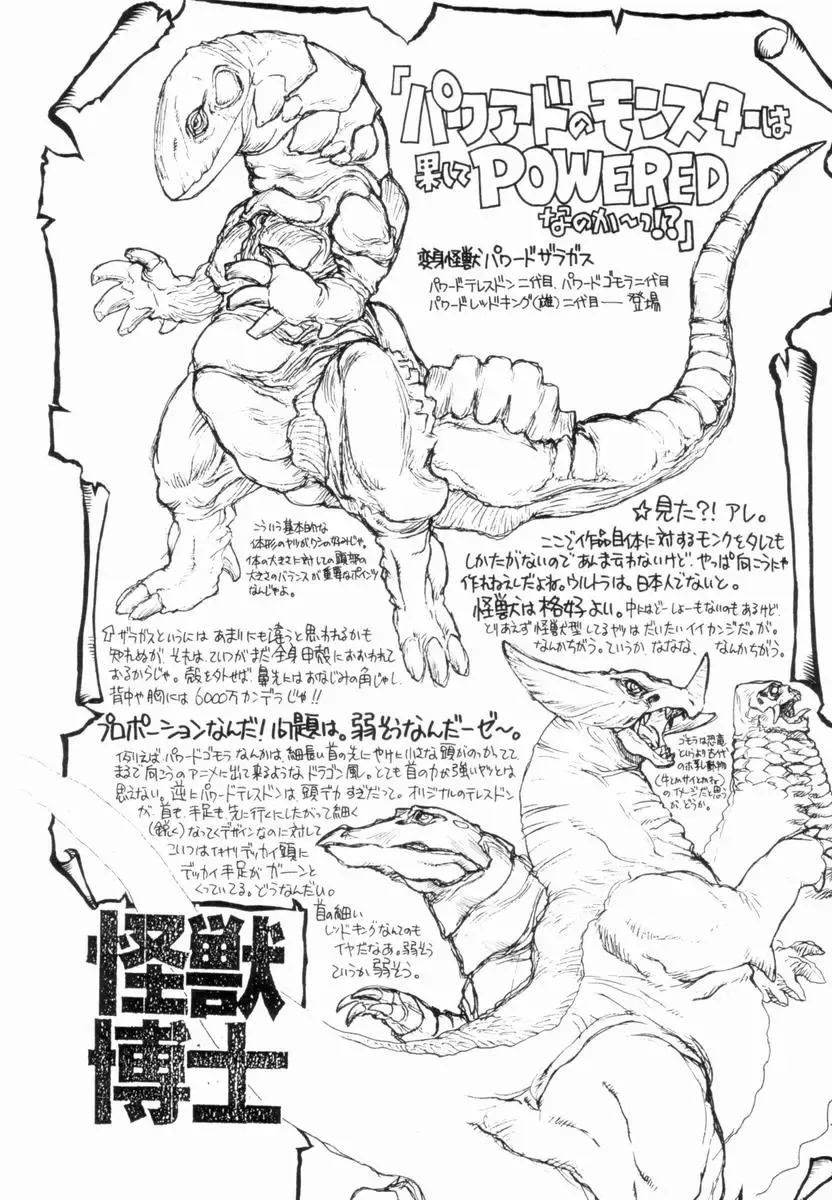 「パワアドのモンスターは
果してPOWERED
なのか〜っ!?」
変身怪獣パワードザラガス
パワードテレスドン二代目、パワードゴモラ二代目
パワードレッドキング(雄)二代目──登場
こういう基本的な
体形のヤツがワシの好みじゃ。
体の大きさに対しての頭部の
大きさのバランスが重要なポインツ
なんじゃよ。
☆見た?!アレ。
ここで作品自体に対するモンクをタレても
しかたがないのであんま云わないけど、やっぱ向こうじゃ
作れねえんだよね。ウルトラは。日本人でないと。
怪獣は格好よい。中にはどーしょーもないのもあるけど、
とりあえず怪獣型してるヤツはだいたいイイカンジだ。が。
なんかちがう。ていうか、ななな、なんかちがう。
ザラガスというにはあまりにも違うと思われるかも
知れぬが、それは、ていつがまだ全身甲殻におおわれて
おるからじゃ。殻を外せば、鼻先にはおなじみの角じゃし、
背中や胸には6000万カンデラじゅ!!
プロポーションなんだ!問題は。弱そうなんだーゼ〜。
例えばパワードゴモラなんかは、細長い首の先にやけに小さな頭がのっかてて
まるで向こうのアニメに出て来るようなドラゴン風。とても首の力が強いヤツとは
思えない。逆にパワードテレスドンは、頭デカすぎだって。オリジナルのテレスドン
が、首も、手足も、先に行くにしたがって細く
(鋭く)なってくデザインなのに対して
こいつはイキナリデッカイ頭に
デッカイ手足がガーンと
くっていてる。どうなんだい。
ゴモラは恐竜
というより古代
のホ乳動物
(牛とかサイとかね)
のイメージだと思う
が、どうか。
首の細い
レッドキングなんてのも
イヤだなあ。弱そう
ていうか弱そう。
怪獣
博士